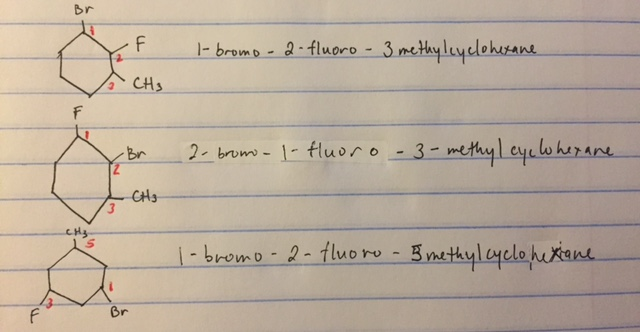 Br
1
F
2
3
CH3
1-bromo-2-fluoro-3 methylcyclohexane
F
1
Br
2
CH3
3
2-bromo-1-fluoro-3-methylcyclohexane
CH3
5
1
3
F
Br
1-bromo-2-fluoro-5methylcyclohexane